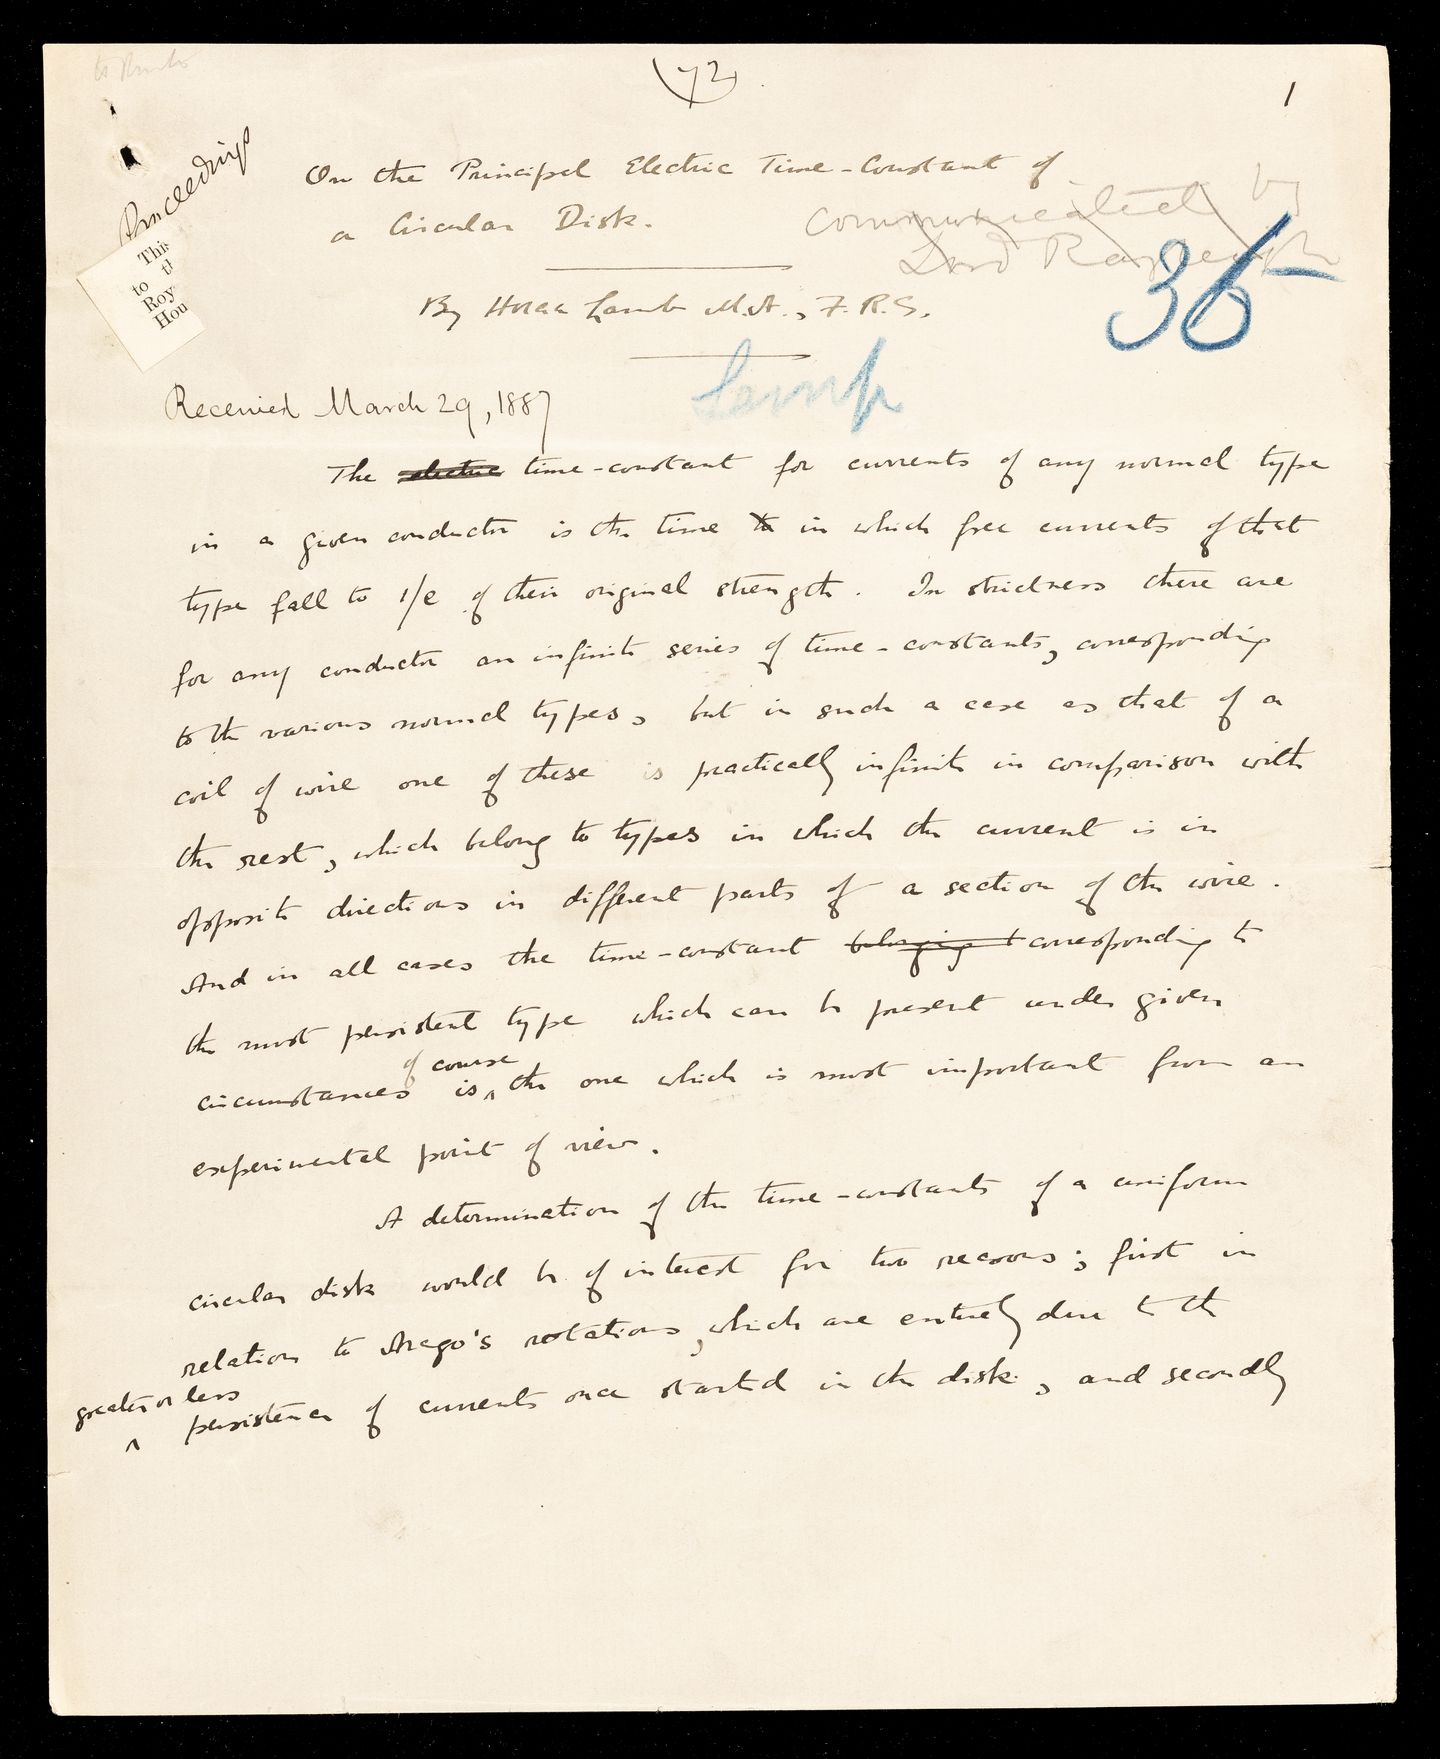 (72)
1
Proceedings
This
th
to
Roy
Hou
On the Principal Electric Time-Constant of
a Circular Disk.
Communicated by
Lord Rayleigh
36
By Horace Lamb M.A., F.R.S.
Lamb
Received March 29, 1887
The electric time-constant for currents of any normal type
in a given conductor is the time th in which free currents of that
type fall to 1/e of their original strength. In strictness there are
for any conductor an infinite series of time-constants, corresponding
to the various normal types, but in such a case as that of a
coil of wire one of these is practically infinite in comparison with
the rest, which belong to types in which the current is in
opposite directions in different parts of a section of the wire.
And in all cases the time-constant belonging t corresponding to
the most persistent type which can be present under given
of course
circumstances is ^ the one which is most important from an
experimental point of view.
A determination of the time-constants of a uniform
circular disk would be of interest for two reasons; first in
relation to Arago's rotations, which are entirely due to the
greater or less
^ persistence of currents once started in the disk, and secondly